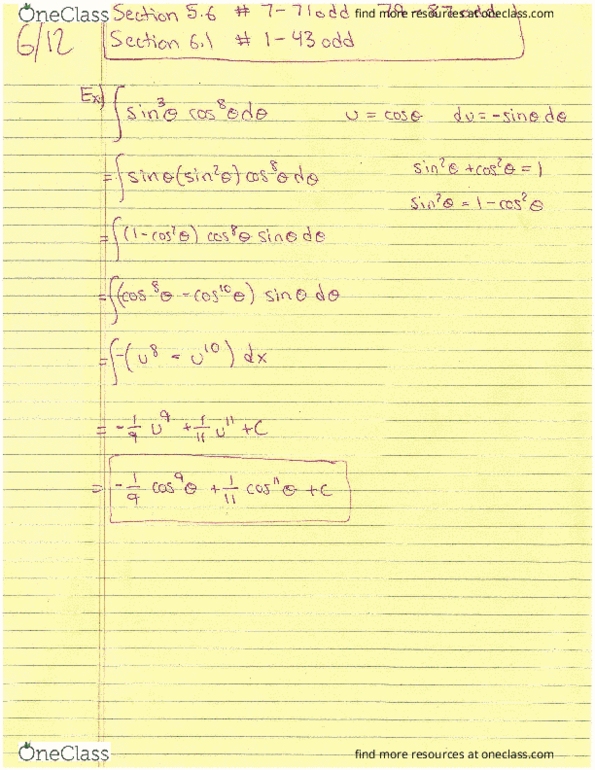 OneClass
find more resources at oneclass.com
Section 5.6 # 7-71 odd
6/12
Section 6.1 # 1-43 odd
Ex) ∫ sin³θ cos⁸θ dθ u = cosθ du = -sinθ dθ
= ∫ sinθ(sin²θ) cos⁸θ dθ sin²θ + cos²θ = 1
sin²θ = 1 - cos²θ
= ∫ (1-cos²θ) cos⁸θ sinθ dθ
= ∫ (cos⁸θ - cos¹⁰θ) sinθ dθ
= ∫ -(u⁸ - u¹⁰) dx
= -1/9 u⁹ + 1/11 u¹¹ + C
= -1/9 cos⁹θ + 1/11 cos¹¹θ + C
OneClass
find more resources at oneclass.com